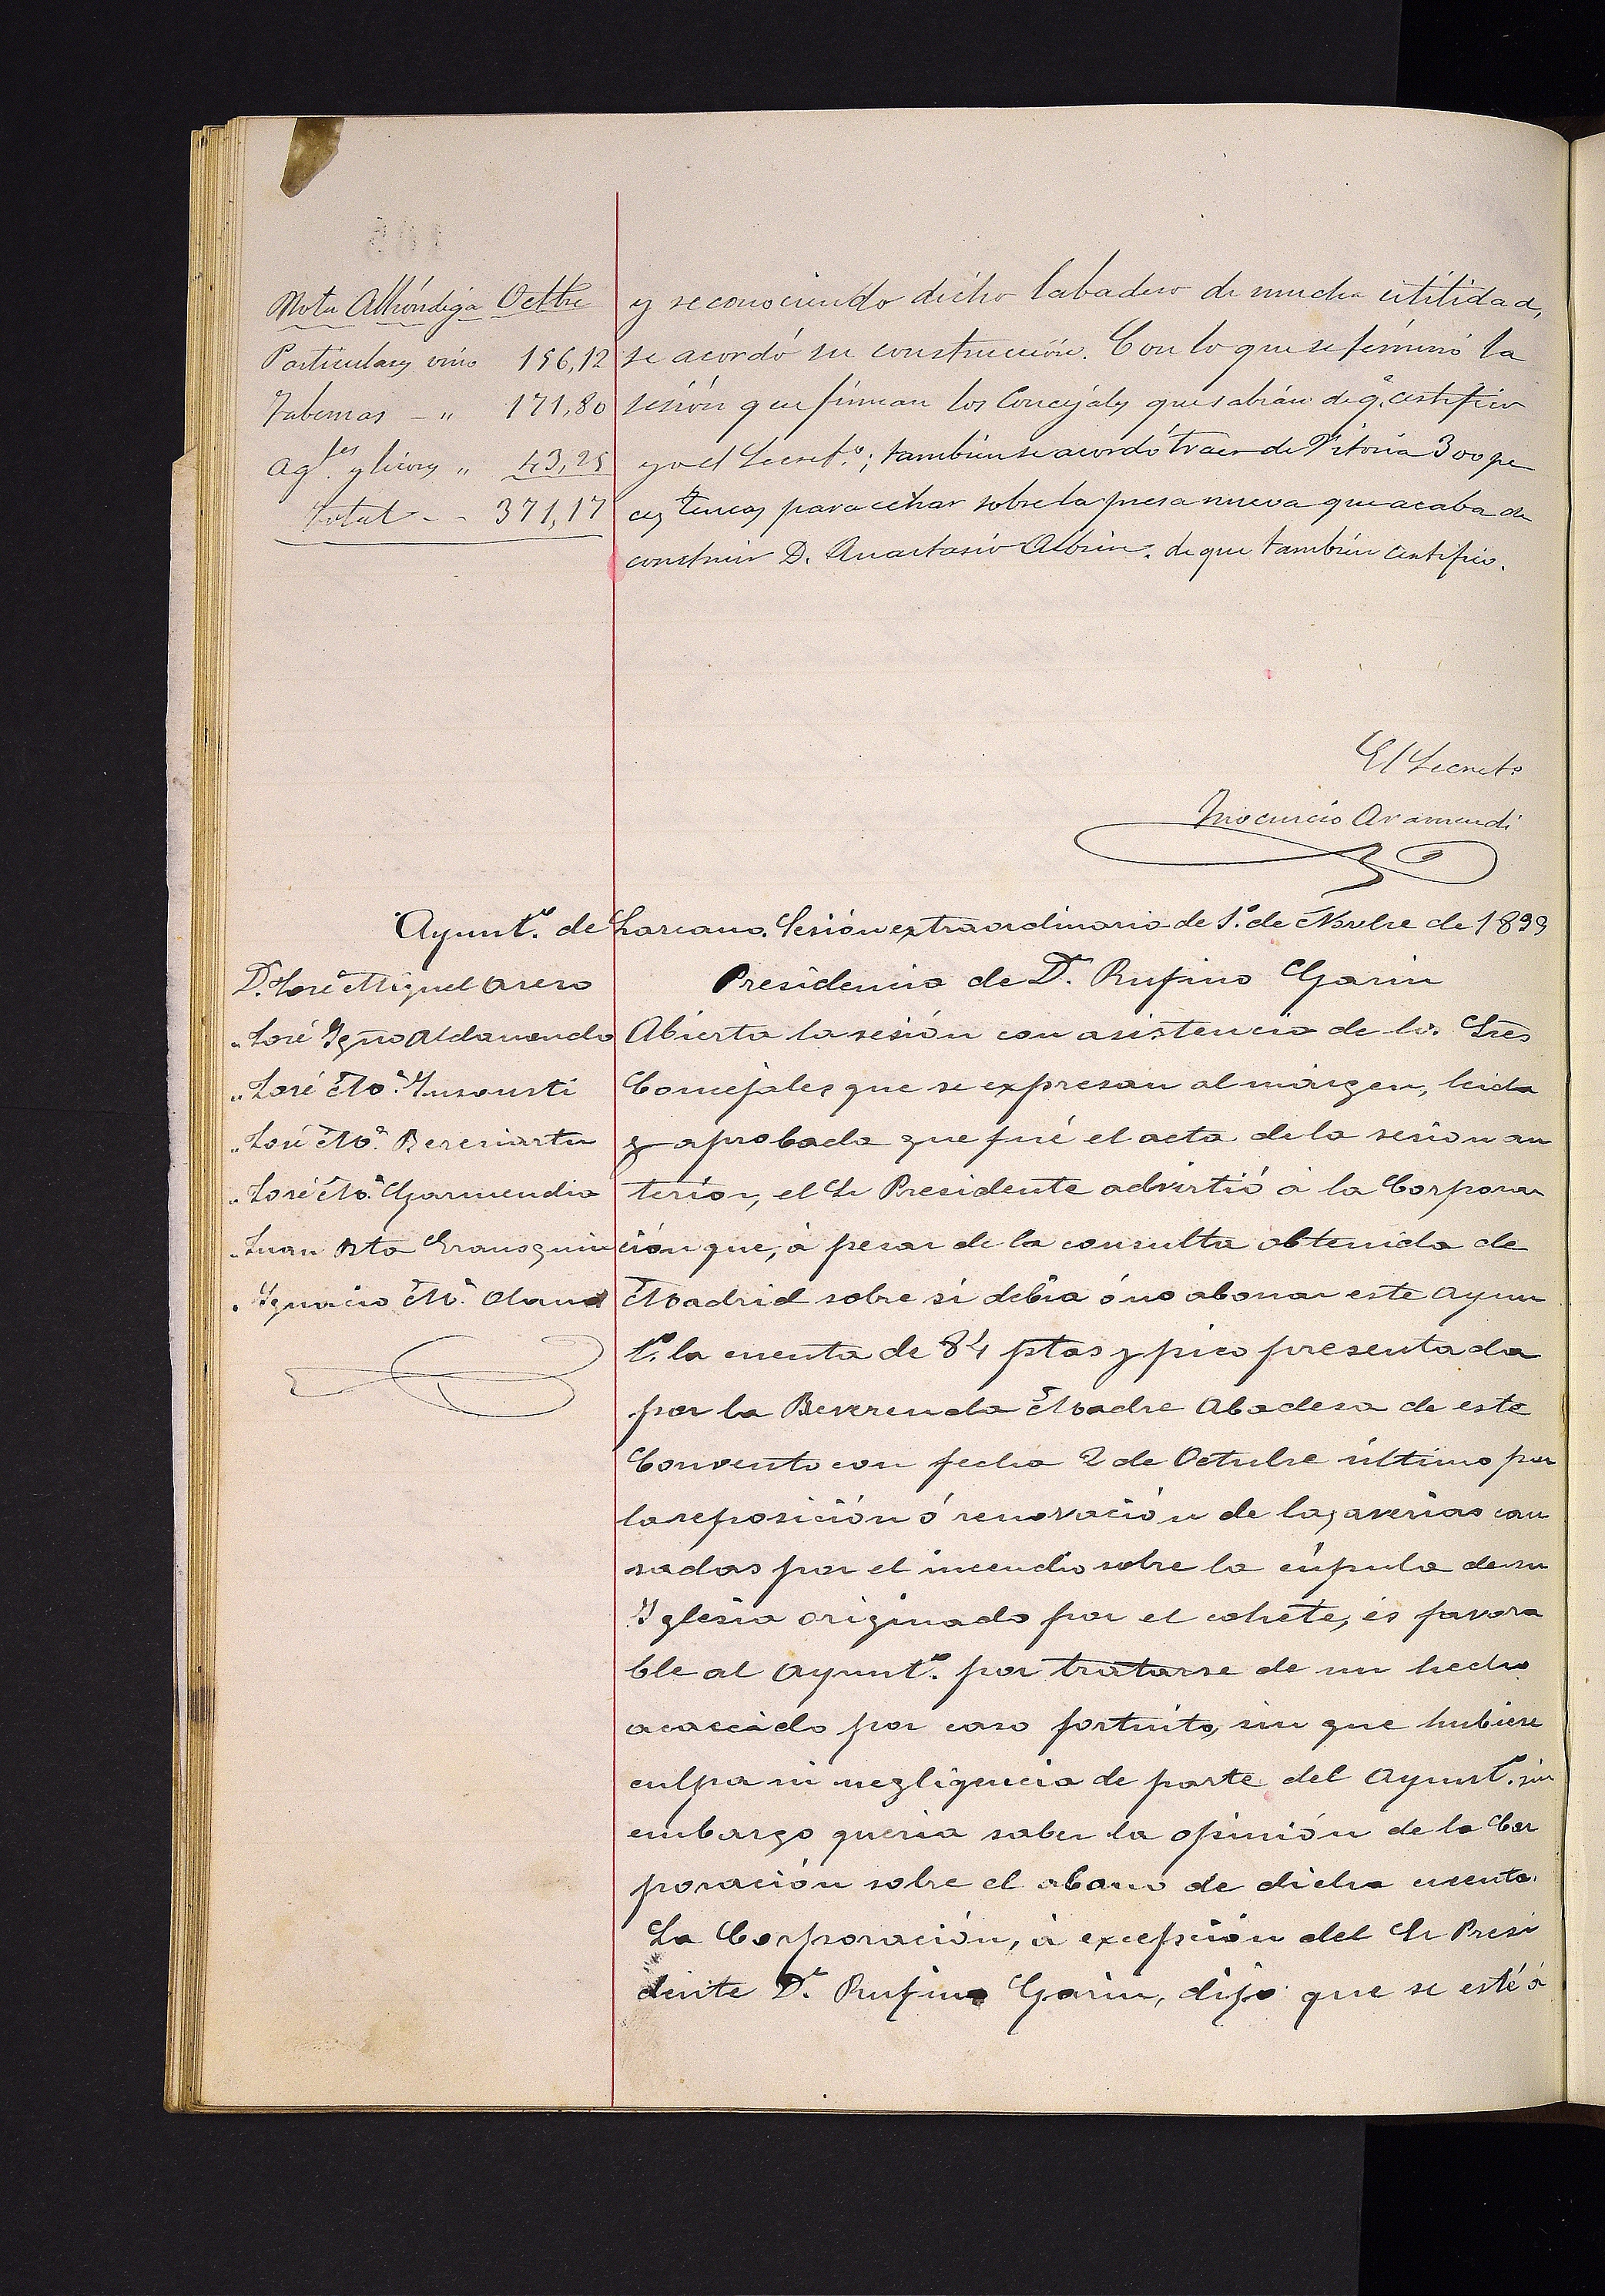 Nota Alhóndiga Octbre
Particulares vino 156,12
Tabernas - " 171,80
Agtes. y licores " 43,25
Total - - 371,17
y reconociendo dicho labadero de mucha utilidad,
se acordó su construcción. Con lo que se términó la
sesión que firman los Concejales que sabián de q.e certifico
yo el Secret.o; también se acordó traer de Vitoria 300 pe
ces tencas para echar sobre la presa nueva que acaba de
construir D. Anastasio . de que también certifico.
El Secreto
Inocencio Aramendi
Ayunt.o de Lazcano. Sesión extraordinaria de 1.o de Novbre de 1899
D.n José Miguel Arero
" José Ygno Aldanondo
" José M.a Insausti
" José M.a Bereciartu
" José M.a Garmendia
" Juan Bta
" Ygnacio M.a Olano
Presidencia de D.n Rufino Garin
Abierta la sesión con asistencia de los Sres
Concejales que se expresan al márgen, leida
y aprobada que fué el acta de la sesion an
terior, el Sr Presidente advirtió á la Corpora
ción que, á pesar de la consulta obtenida de
Madrid sobre si debia ó no abonar este Ayun
t.o la cuenta de 84 ptas y pico presentada
por la Reverenda Madre Abadesa de este
Convento con fecha 2 de Octubre último por
la reposición ó renovación de las averias cau
sadas por el incendio sobre la cúpula de su
Yglesia originado por el cohete, és favora
ble al Ayunt.o por tratarse de un hecho
acaecido por caso fortuito, sin que hubiere
culpa ni negligencia de parte del Ayunt.o sin
embargo queria saber la opinión de la Cor
poración sobre el abono de dicha cuenta.
La Corporación, á excepción del Sr Presi
dente D.n Rufino Garin, dijo que se esté á